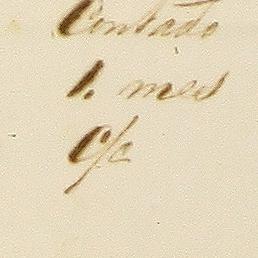 Contado
1. mes
C/c